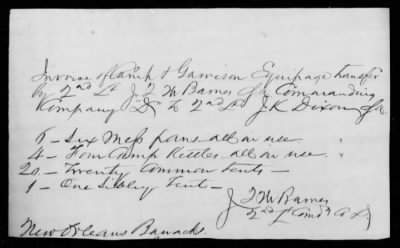 Invoice of Camp & Garrison Equipage transfer
by 2nd Lt J T W Barnes Commanding
Company "D" to 2nd Lt J. K. Dixon
6 - Six Mess pans all in use
4 - Four Camp Kettles all in use
20 - Twenty Common Tents -
1 - One Sibley Tent -
Barnes
2nd Lt Comd'g
New Orleans Barracks.